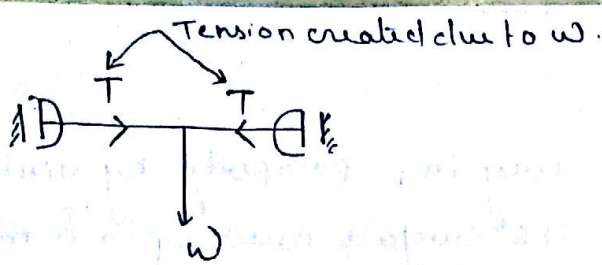 Tension created due to w.
T
T
w